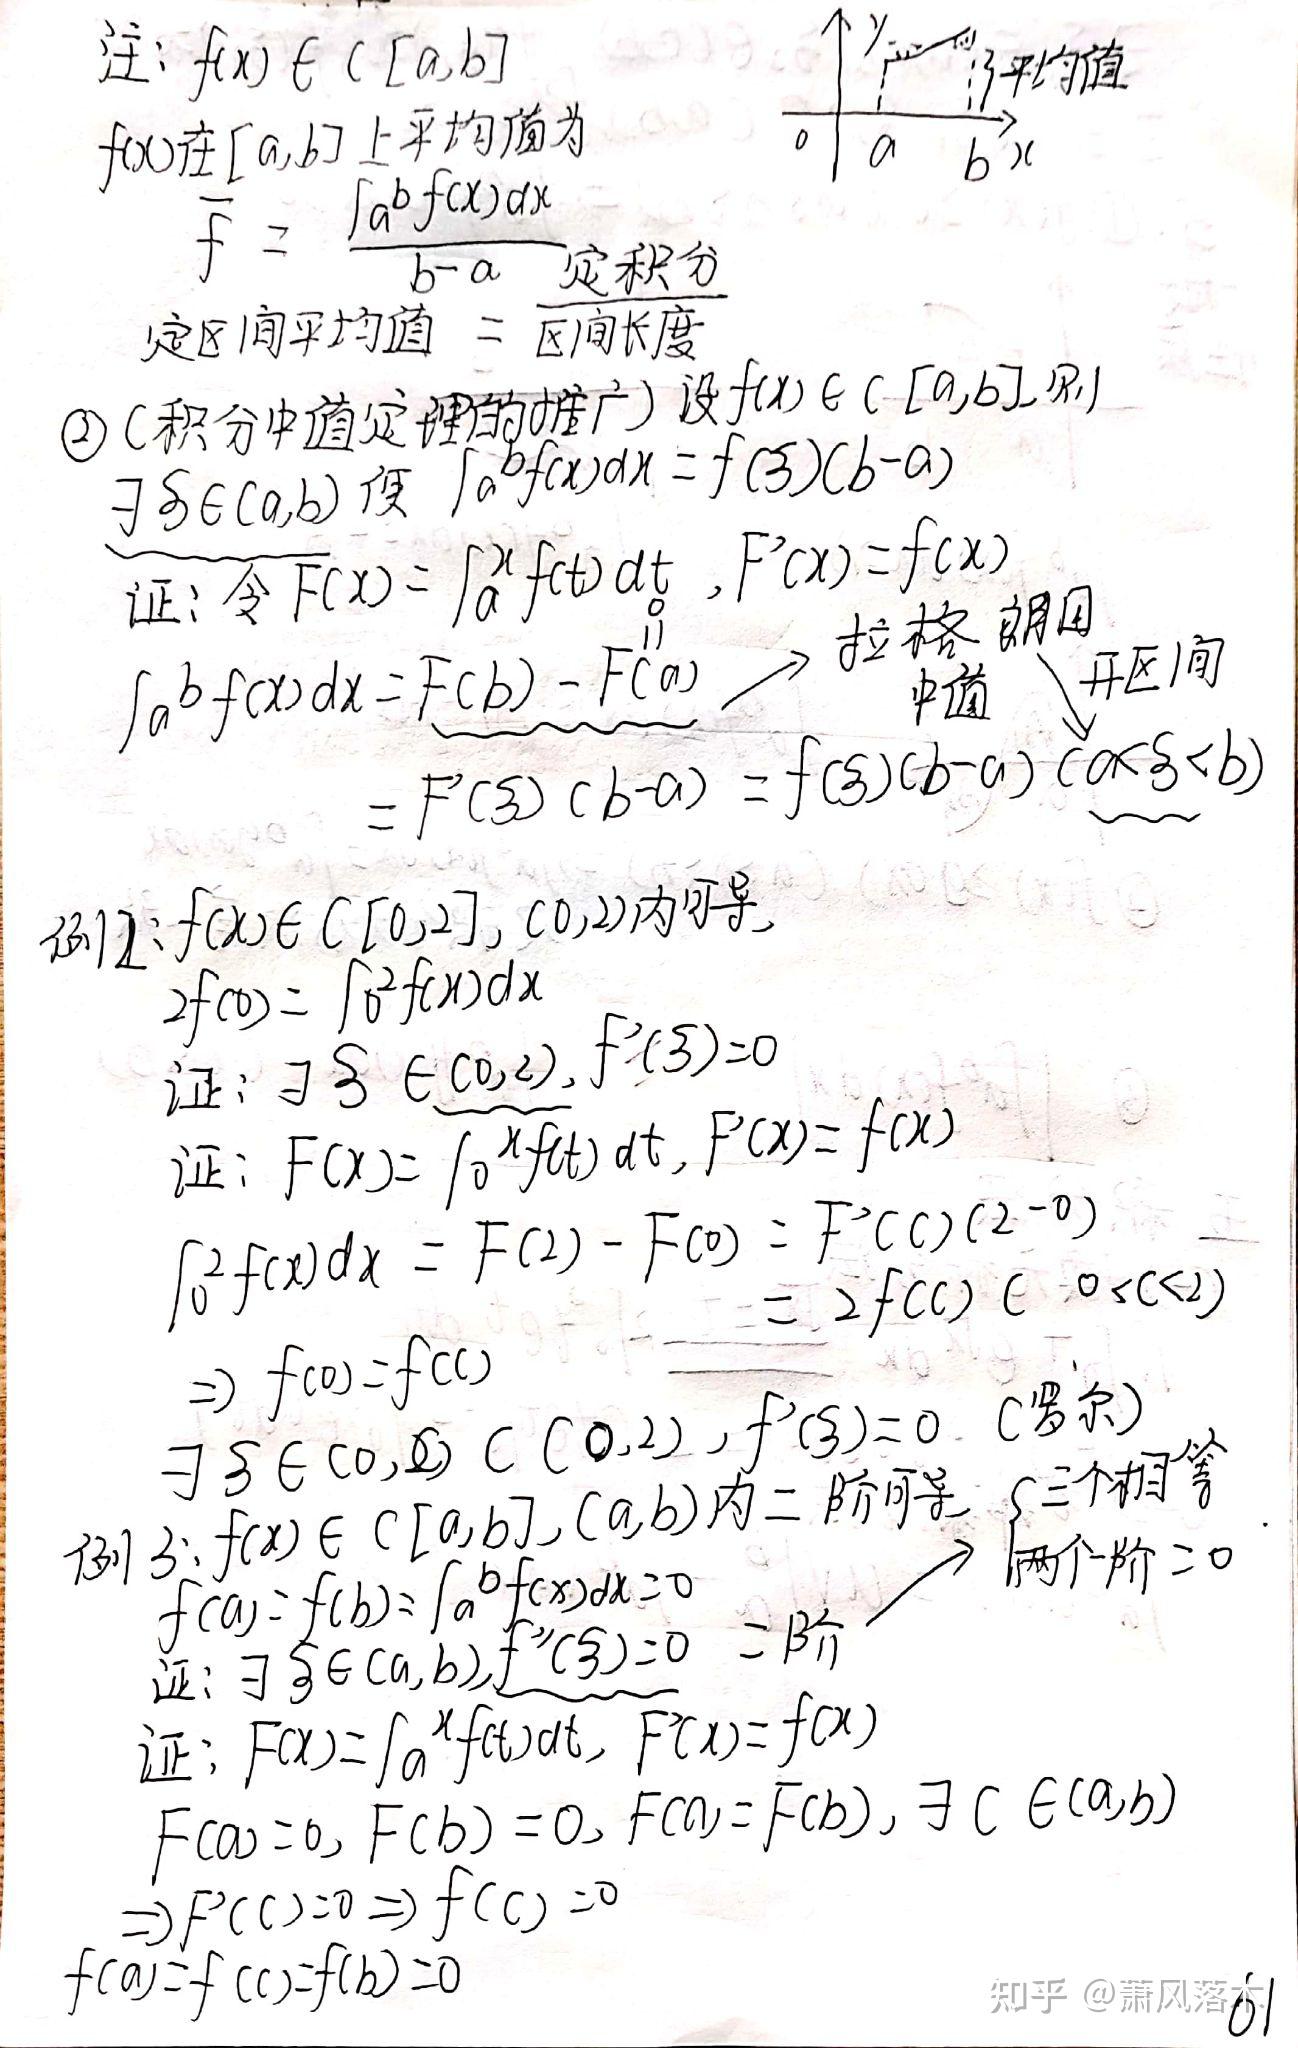 注: f(x) ∈ C [a,b]
y
平均值
0 a b x
f(x)在[a,b]上平均值为
f̄ = ∫a^b f(x)dx / b-a
定区间平均值 = 定积分 / 区间长度
② (积分中值定理的推广) 设f(x) ∈ C [a,b], 则
∃ξ∈(a,b) 使 ∫a^b f(x)dx = f(ξ)(b-a)
证: 令 F(x) = ∫a^x f(t) dt, F'(x) = f(x)
0
=
拉格朗日
中值
开区间
∫a^b f(x)dx = F(b) - F(a)
= F'(ξ) (b-a) = f(ξ)(b-a) (a<ξ<b)
f(x) ∈ C [0,2], (0,2)内可导,
2f(0) = ∫0^2 f(x)dx
证: ∃ ξ ∈(0,2), f'(ξ)=0
证: F(x) = ∫0^x f(t) dt, F'(x) = f(x)
∫0^2 f(x)dx = F(2) - F(0) = F'(c)(2-0)
= 2f(c) ( 0<c<2)
⇒ f(0)=f(c)
∃ ξ ∈ (0,c) ⊂ (0,2), f'(ξ)=0 (罗尔)
例3: f(x) ∈ C [a,b], (a,b)内二阶可导,
{三个相等
两个一阶=0
f(a) = f(b) = ∫a^b f(x)dx=0
证: ∃ ξ∈(a,b), f''(ξ)=0 二阶
证: F(x) = ∫a^x f(t)dt, F'(x) = f(x)
F(a)=0, F(b)=0, F(a)=F(b), ∃ C ∈(a,b)
⇒F'(c)=0 ⇒ f(c)=0
f(a)=f(c)=f(b)=0
知乎 @萧风落木
61